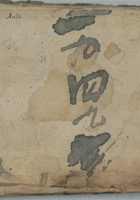 一九四九年